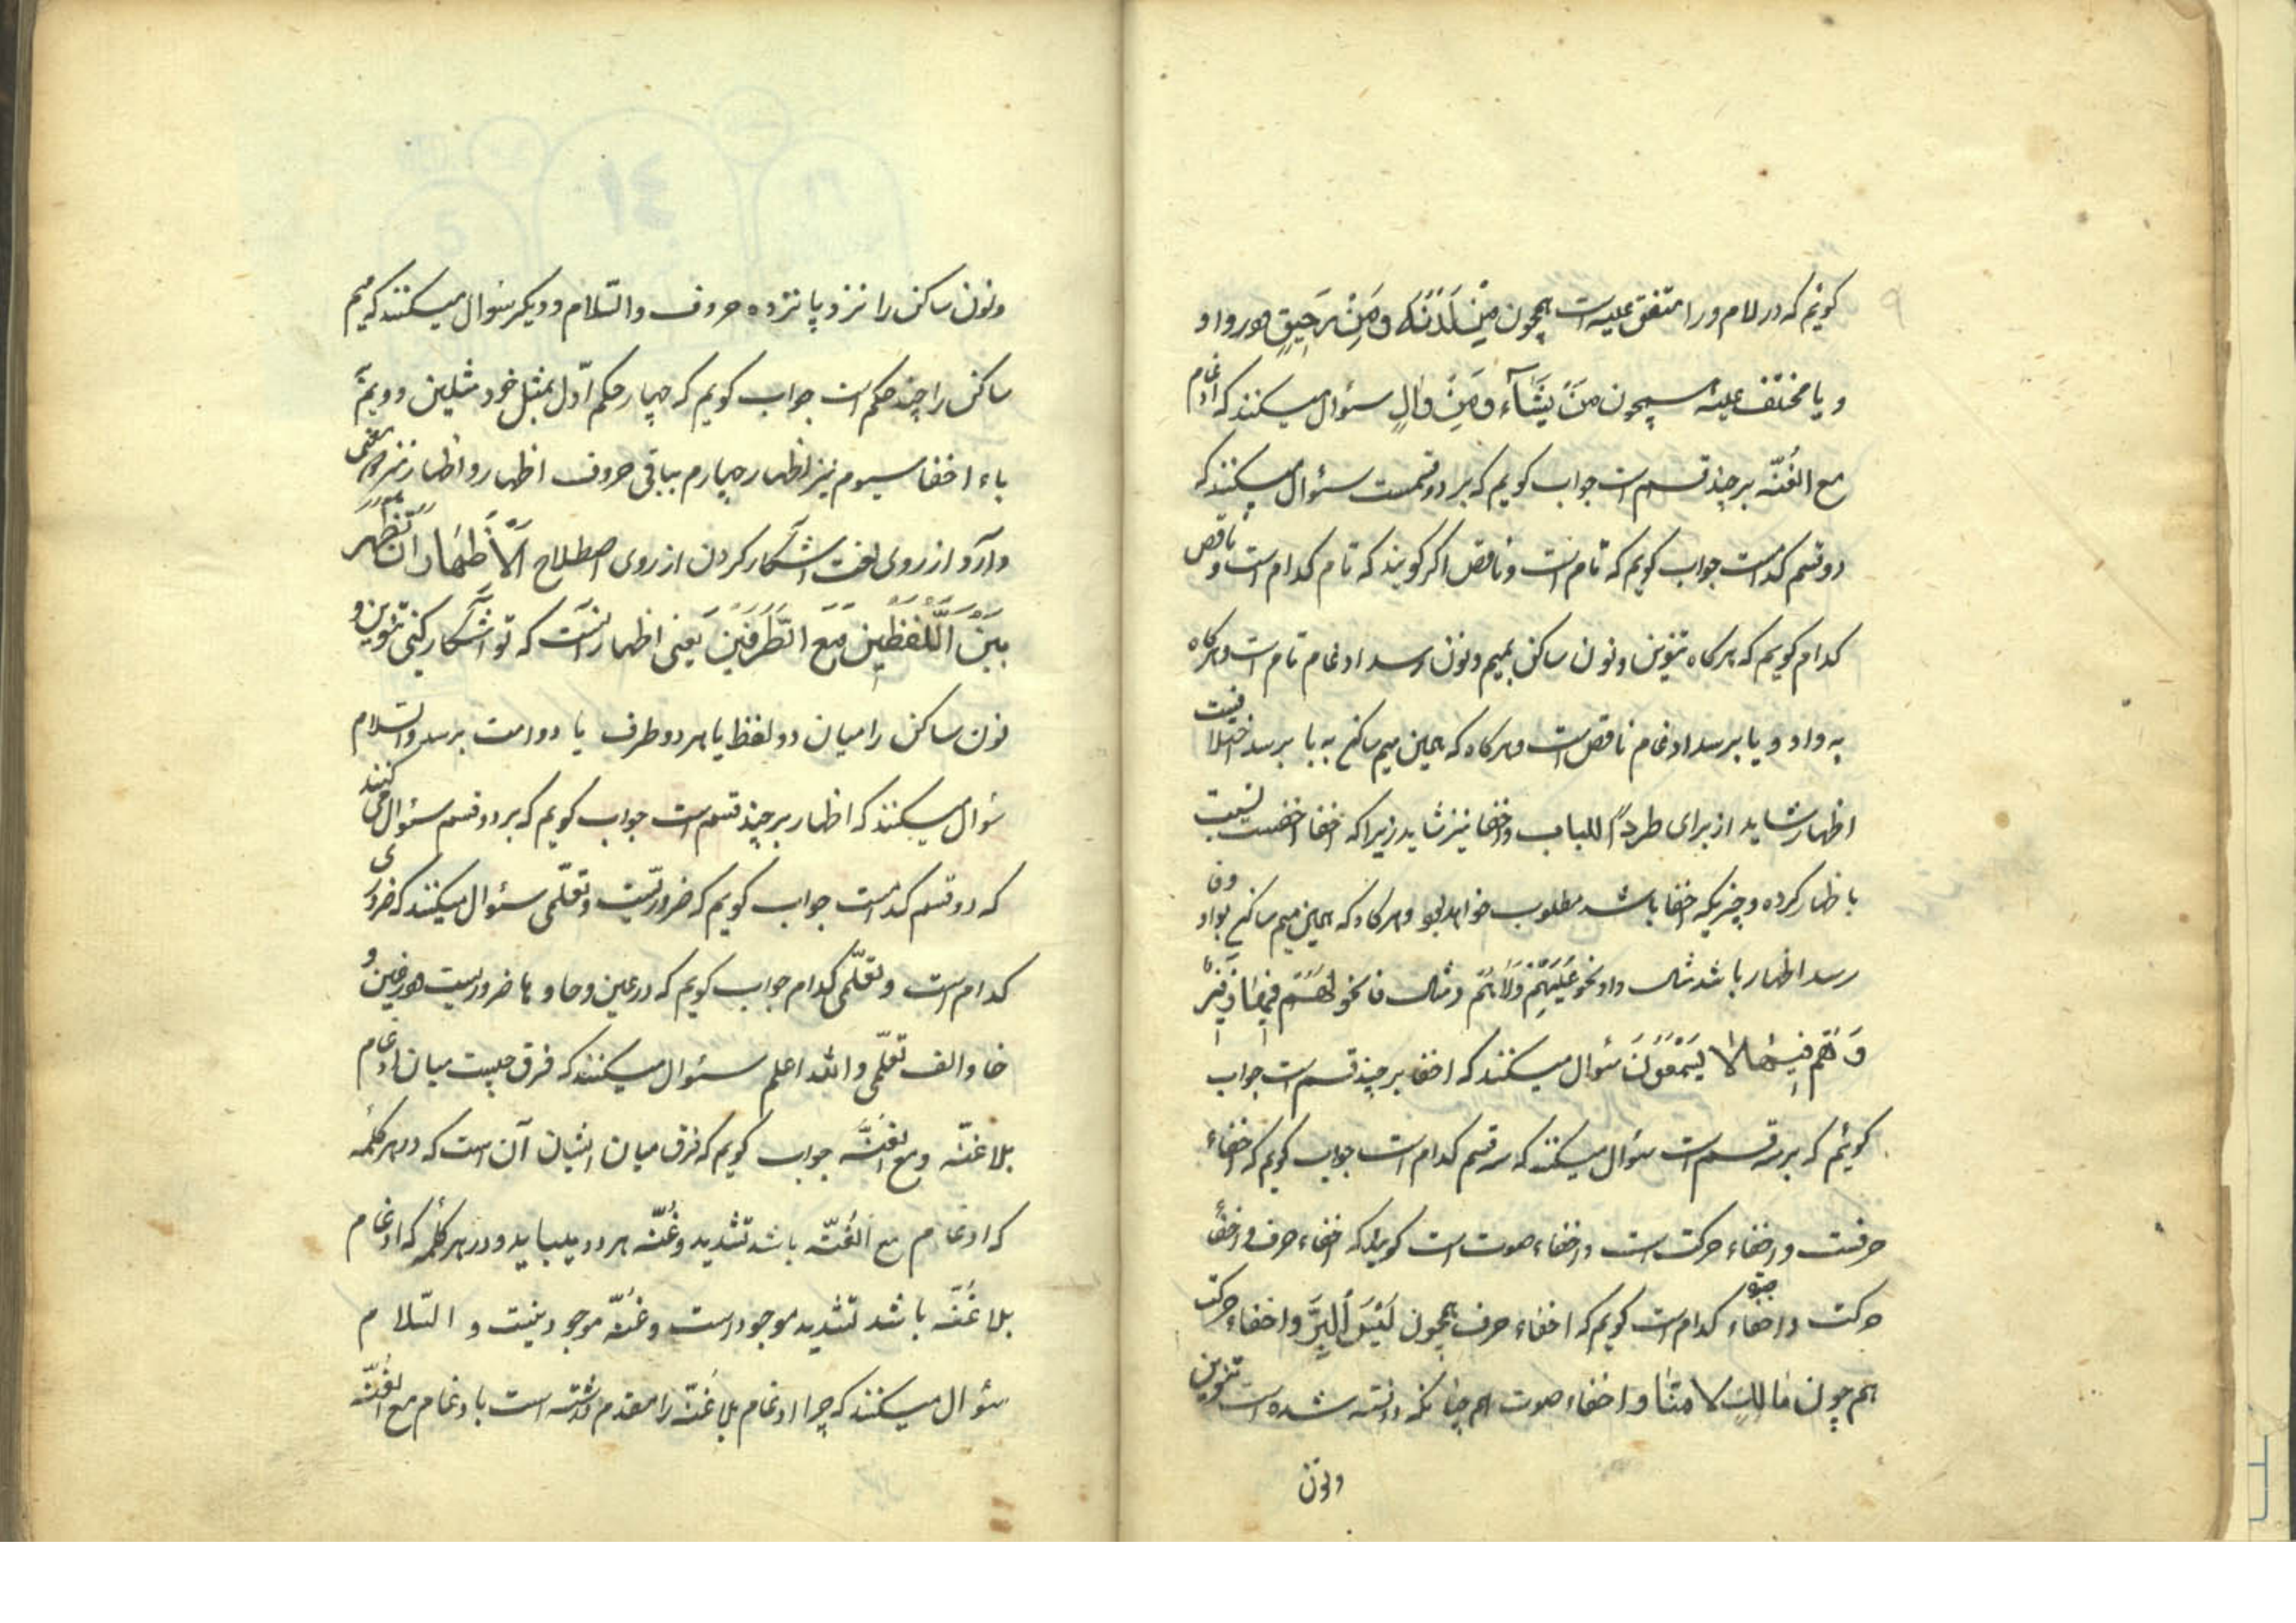 ۹
كوئيم كه در لام و را متفق عليه است همچون مِنْ لَدُنْهُ و مِنْ رَحِيقٍ و در واو
و يا مختلف عليه همچون مَنْ يَشَآء و مِنْ وَالٍ سؤال ميكنند كه ادغام
مع الغُنّه بر چند قسم است جواب كويم كه بر دو قسمست سؤال ميكنند كه
دو قسم كدامست جواب كويم كه تام است و ناقص اكر كويند كه تام كدام است و ناقص
كدام كويم كه هركاه تنوين و نون ساكن بميم و نون رسد ادغام تام است و هركاه
به واو و يا برسد ادغام ناقص است و هركاه كه همين ميم ساكن به با برسد اختلافيست
اظهار شايد از براى طرداً للباب و اخفا نيز شايد زيرا كه اخفا اخفست نسبت
باظهار كرده و چيزيكه اخفا باشد مطلوب خواهد بود و هركاه كه همين ميم ساكن بواو و فا
رسد اظهار باشد مثال واو نحو عَلَيْهِمْ وَلَا هُمْ و مثال فا نحو لَهُمْ فِيهَا زَفِيرٌ
وَ هُمْ فِيهَا لَا يَسْمَعُونَ سؤال ميكنند كه اخفا بر چند قسم است جواب
كوئيم كه بر سه قسم است سؤال ميكنند كه سه قسم كدام است جواب كويم كه اخفاء
حرفست و اخفاء حركت است و اخفاء صوت است كويند كه اخفاء حرف و اخفاء
حركت و اخفاء صوت كدام است كويم كه اخفاء حرف همچون لَيْسَ اَلْبِرَّ و اخفاء حركت
همچون مَالَكَ لَا تَأْمَنَّا و اخفاء صوت همچنانكه دانسته شده است تنوين
و نون
و نون ساكن را نزد پانزده حروف والسّلام و ديكر سؤال ميكنند كه ميم
ساكن را چند حكم است جواب كويم كه چهار حكم اوّل بمثل خود مثلين دويم نزد
باء اخفا سيوم نيز اظهار چهارم بباقى حروف اظهار و اظهار نيز دو معنى
دارد از روى لغت آشكار كردن از روى اصطلاح اَلْاَظْهَارُ اَنْ تُظْهِرَ
بَيْنَ اللَّفْظَيْنِ مَعَ الطَّرَفَيْنِ يعنى اظهار آنست كه تو آشكار كنى تنوين و
نون ساكن را ميان دو لفظ با هر دو طرف يا دو امت برسد والسّلام
سؤال ميكنند كه اظهار بر چند قسم است جواب كويم كه بر دو قسم سؤال مى كنند
كه دو قسم كدامست جواب كويم كه ضروريست و تعلّمى سؤال ميكنند كه ضرورى
كدام است و تعلّمى كدام جواب كويم كه در عين و حا و ها ضروريست و در غين و
خا و الف تعلّمى والله اعلم سؤال ميكنند كه فرق چيست ميان ادغام
بلا غنّه و مع الغنّه جواب كويم كه فرق ميان ايشان آن است كه در هر كلمه
كه ادغام مع الغُنّه باشد تشديد و غُنّه هر دو ميبايد و در هر كلمه كه ادغام
بلا غُنّه باشد تشديد موجود است و غُنّه موجود نيست و السّلام
سؤال ميكنند كه چرا ادغام بلا غُنّه را مقدم داشته است با ادغام مع الغُنّه